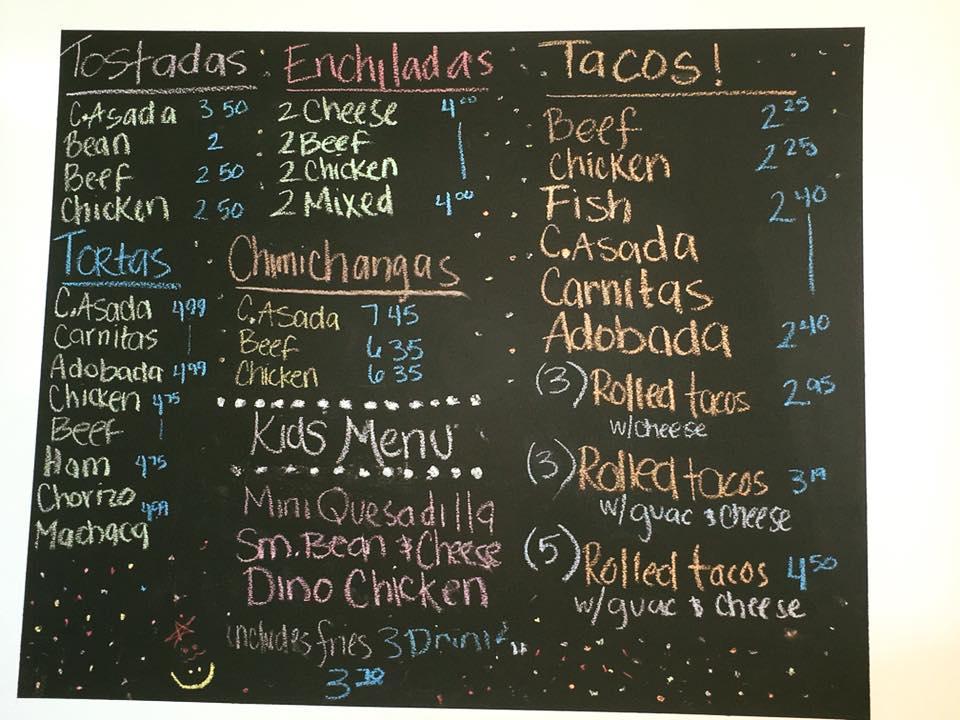 Tostadas
C.Asada 3 50
Bean 2
Beef 2 50
Chicken 2 50
Enchiladas
2 Cheese 4.00
2 Beef
2 Chicken
2 Mixed 4.00
Tacos!
Beef 2 25
Chicken 2 25
Fish 2 40
C.Asada
Carnitas
Adobada 2 40
(3) Rolled tacos 2 95
w/cheese
(3) Rolled tacos 3 19
w/guac & cheese
(5) Rolled tacos 4 50
w/guac & cheese
Tortas
C.Asada 4 99
Carnitas
Adobada 4 99
Chicken 4 75
Beef
Ham 4 75
Chorizo 4 99
Machaca
Chimichangas
C.Asada 7 45
Beef 6 35
Chicken 6 35
Kids Menu
Mini Quesadilla
Sm. Bean & Cheese
Dino Chicken
includes fries